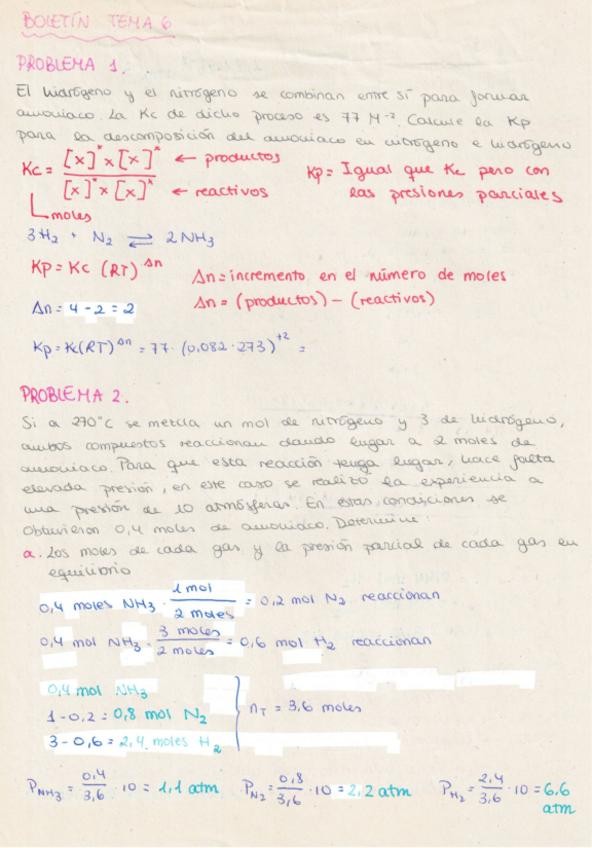 BOLETÍN TEMA 6
PROBLEMA 1.
El hidrógeno y el nitrógeno se combinan entre sí para formar
amoniaco. La Kc de dicho proceso es 77 M⁻². Calcule la Kp
para la descomposición del amoniaco en nitrógeno e hidrógeno
Kc = [x]ˣ x [x]ˣ ← productos
[x]ˣ x [x]ˣ ← reactivos
moles
Kp = Igual que Kc pero con
las presiones parciales
3H₂ + N₂ ⇌ 2NH₃
Kp = Kc (RT)^Δn
Δn = incremento en el número de moles
Δn = 4 - 2 = 2
Δn = (productos) - (reactivos)
Kp = Kc(RT)^Δn = 77 · (0,082 · 273)⁺² =
PROBLEMA 2.
Si a 270°C se mezcla un mol de nitrógeno y 3 de hidrógeno,
ambos compuestos reaccionan dando lugar a 2 moles de
amoniaco. Para que esta reacción tenga lugar, hace falta
elevada presión, en este caso se realizó la experiencia a
una presión de 10 atmósferas. En estas condiciones se
obtuvieron 0,4 moles de amoniaco. Determine:
a. Los moles de cada gas y la presión parcial de cada gas en
equilibrio
0,4 moles NH₃ · 1 mol / 2 moles = 0,2 mol N₂ reaccionan
0,4 mol NH₃ · 3 moles / 2 moles = 0,6 mol H₂ reaccionan
0,4 mol NH₃
1 - 0,2 = 0,8 mol N₂
nT = 3,6 moles
3 - 0,6 = 2,4 moles H₂
P_NH₃ = 0,4 / 3,6 · 10 = 1,1 atm P_N₂ = 0,8 / 3,6 · 10 = 2,2 atm P_H₂ = 2,4 / 3,6 · 10 = 6,6
atm